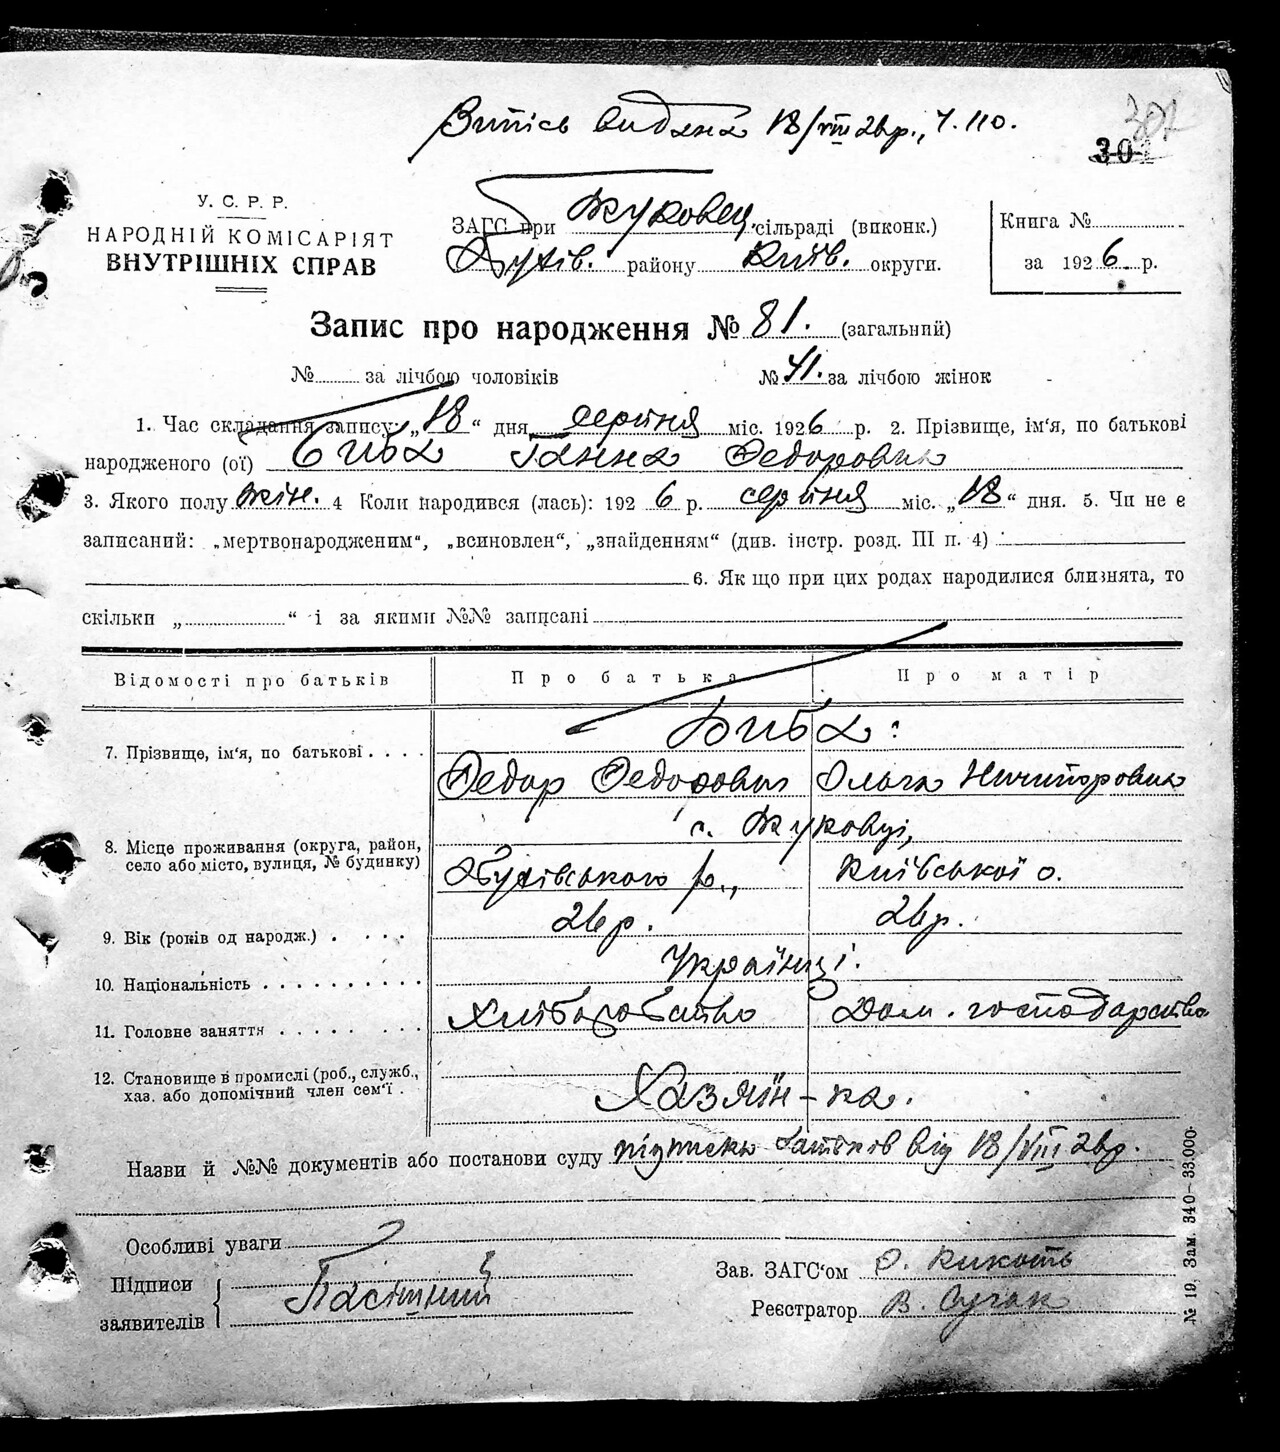 Випись видана 18/VIII 26р., Ч. 110.
307
30
У. С. Р. Р.
НАРОДНІЙ КОМІСАРІЯТ
ВНУТРІШНІХ СПРАВ
ЗАГС при Жуковец. сільраді (виконк.)
Обухів. району Київ. округи.
Книга №
за 1926 р.
Запис про народження № 81. (загальний)
№ за лічбою чоловіків № 41. за лічбою жінок
1. Час складання запису: „18“ дня серпня міс. 1926 р. 2. Прізвище, ім'я, по батькові
народженого (ої) Биба Ганна Федоровна
3. Якого полу жін. 4 Коли народився (лась): 1926 р. серпня міс. „18“ дня. 5. Чи не є
записаний: „мертвонародженим“, „всиновлен“, „знайденням“ (див. інстр. розд. III п. 4)
6. Як що при цих родах народилися близнята, то
скільки „ “ і за якими №№ записані
Відомості про батьків Про батька Про матір
Биба:
7. Прізвище, ім'я, по батькові . . . .
Федор Федорович Ольга Ничипоровна
с. Жуковці,
8. Місце проживання (округа, район,
село або місто, вулиця, № будинку)
Обухівського р., Київської о.
26 р. 26 р.
9. Вік (років од народж.) . . . .
Українці.
10. Національність . . . . . . . . . .
11. Головне заняття . . . . . . . . Хліборобство Дом. господарство
12. Становище в промислі (роб., служб.,
хаз. або допомічний член сем'ї .
Хазяїн-ка.
Назви й №№ документів або постанови суду підписка батьків від 18/VIII 26р.
Особливі уваги
Підписи
заявителів
Зав. ЗАГС'ом О.
Реєстратор В.
№ 19, Зам. 340–33.000.